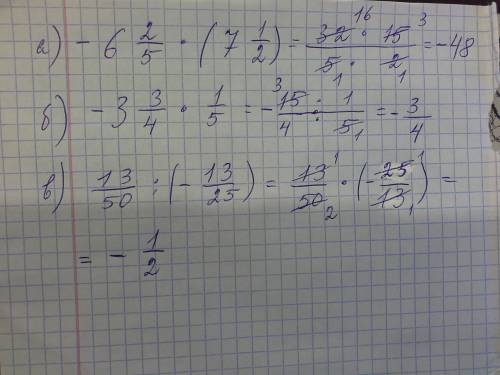 а) - 6 2/5 · (7 1/2) = 32 16 · 15 3 / 5 1 · 2 1 = -48
б) - 3 3/4 · 1/5 = - 3 15/4 : 1/5 1 = - 3/4
в) 13/50 : (- 13/25) = 13 1/50 2 · (- 25 1/13 1) =
= - 1/2